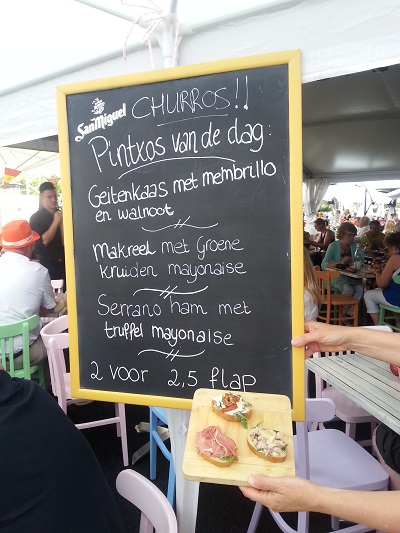 San Miguel
CHURROS!!
Pintxos van de dag:
Geitenkaas met membrillo
en walnoot
Makreel met Groene
kruiden mayonaise
Serrano ham met
truffel mayonaise
2 voor 2,5 flap